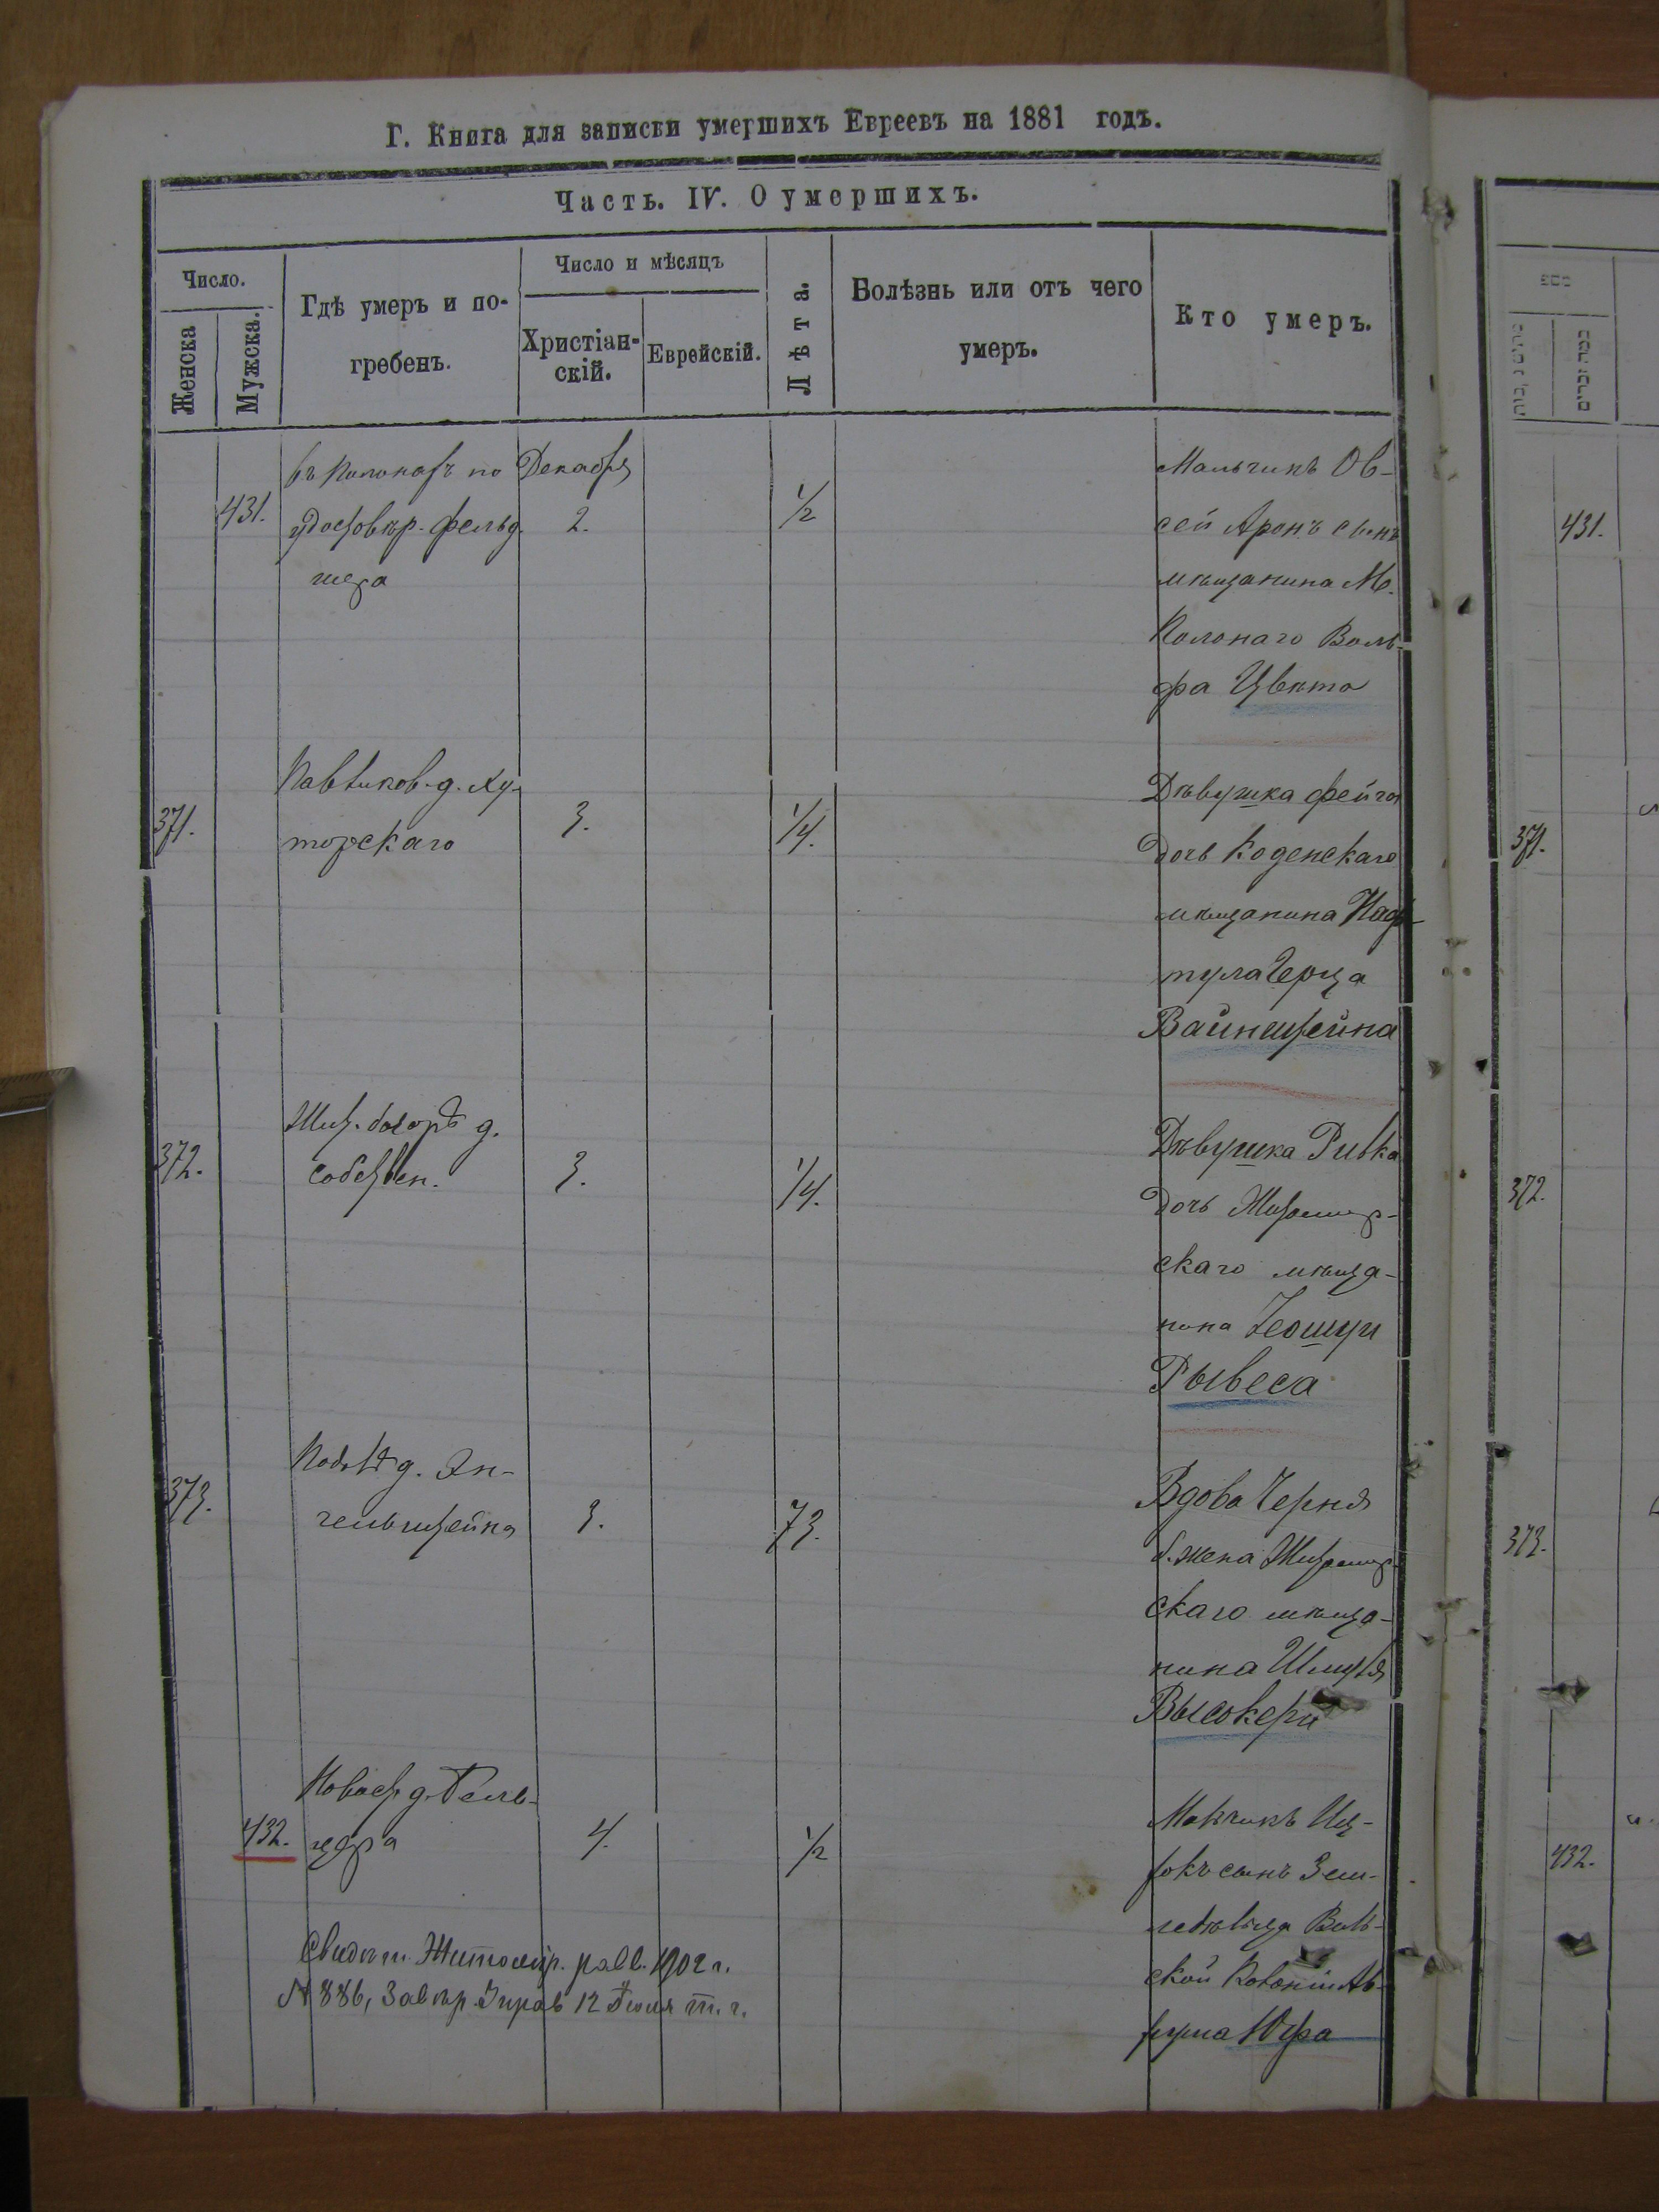 Г. Книга для записки умершихъ Евреевъ на 1881 годъ.
Часть. IV. О умершихъ.
Число.
Женска
Мужска.
Гдѣ умеръ и по-
гребенъ.
Число и мѣсяцъ
Христіан-
скій.
Еврейскій.
Лѣта.
Болѣзнь или отъ чего
умеръ.
Кто умеръ.
431.
въ по
удостовѣр. фельд
шера
Декабря
2.
1/2
Мальчикъ Ов-
сей Аронъ сынъ
мѣщанина М.
Полонаго Воль-
фа Цвѣта
431.
371.
д. Ху-
торскаго
3.
1/4.
Дѣвушка Фейга
дочь Коденскаго
мѣщанина Наф-
тула Герца
Вайнштейна
371.
372.
Жит. д.
собствен.
3.
1/4.
Дѣвушка Ривка
дочь Житомир-
скаго мѣща-
нина Іеошуи
Рывеса
372.
373.
д. Эн-
гельштейна
3.
73.
Вдова Черня
б. жена Житомир-
скаго мѣща-
нина
373.
432.
д. Гель-
цера
4.
1/2
Мальчикъ Иц-
сынъ Зем-
ледѣльца
ской Колоніи Ав-
рума
432.
Свидѣт. Житомир. равв. 1902 г.
№ 886, Завѣр. 12 Іюля т. г.